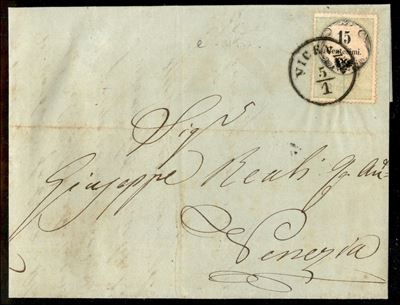 15
Centesimi.
VICE
5/1
Sigr
Giuseppe Reali
Venezia